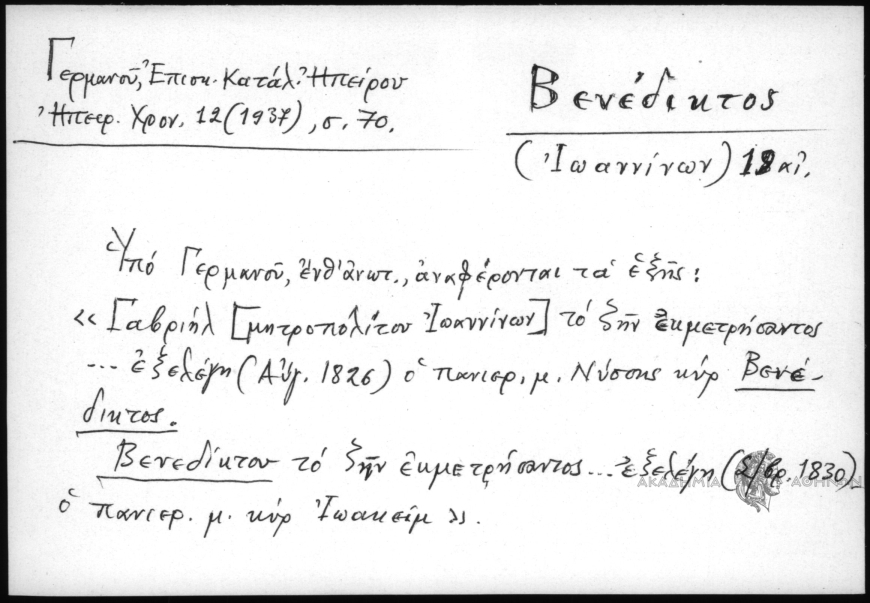 Γερμανοῦ, Ἐπισκ. Κατάλ. Ἠπείρου
Ἠπειρ. Χρον. 12 (1937), σ. 70.
Βενέδικτος
(Ἰωαννίνων) 18 αἰ.
Ὑπό Γερμανοῦ, ἔνθ' ἀνωτ., ἀναφέρονται τά ἑξῆς:
«Γαβριήλ [μητροπολίτου Ἰωαννίνων] τό ζῆν ἐκμετρήσαντος
... ἐξελέγη (Αὔγ. 1826) ὁ πανιερ. μ. Νύσσης κύρ Βενέ-
δικτος.
Βενεδίκτου τό ζῆν ἐκμετρήσαντος ... ἐξελέγη (Σ/βρ. 1830)
ὁ πανιερ. μ. κύρ Ἰωακείμ».
ΑΚΑΔΗΜΙΑ ΑΘΗΝΩΝ